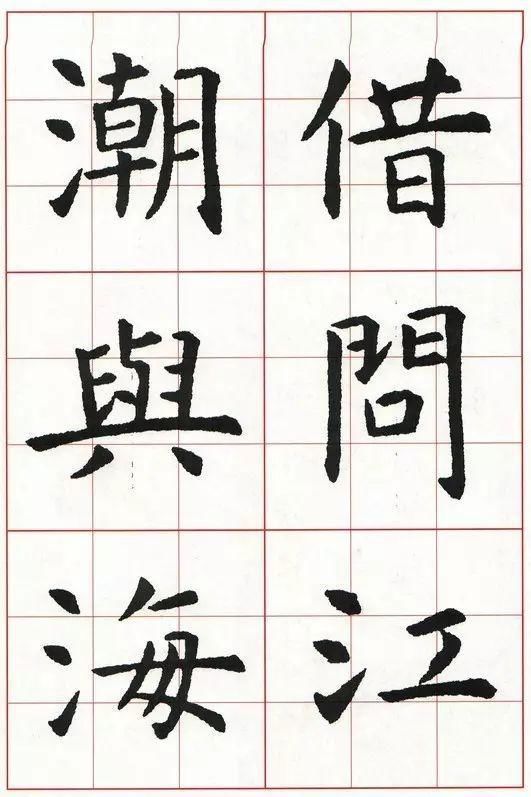 借問江
潮與海